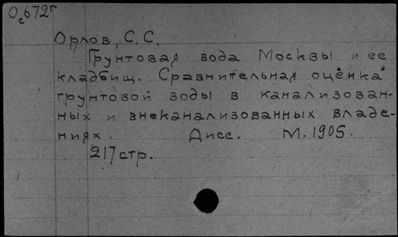 Ос672г
Орлов, С. С.
Грунтовая вода Москвы и ее
кладбищ. Сравнительная оценка
грунтовой воды в канализован-
ных и внеканализованных владе-
ниях. Дисс. М. 1905.
217 стр.